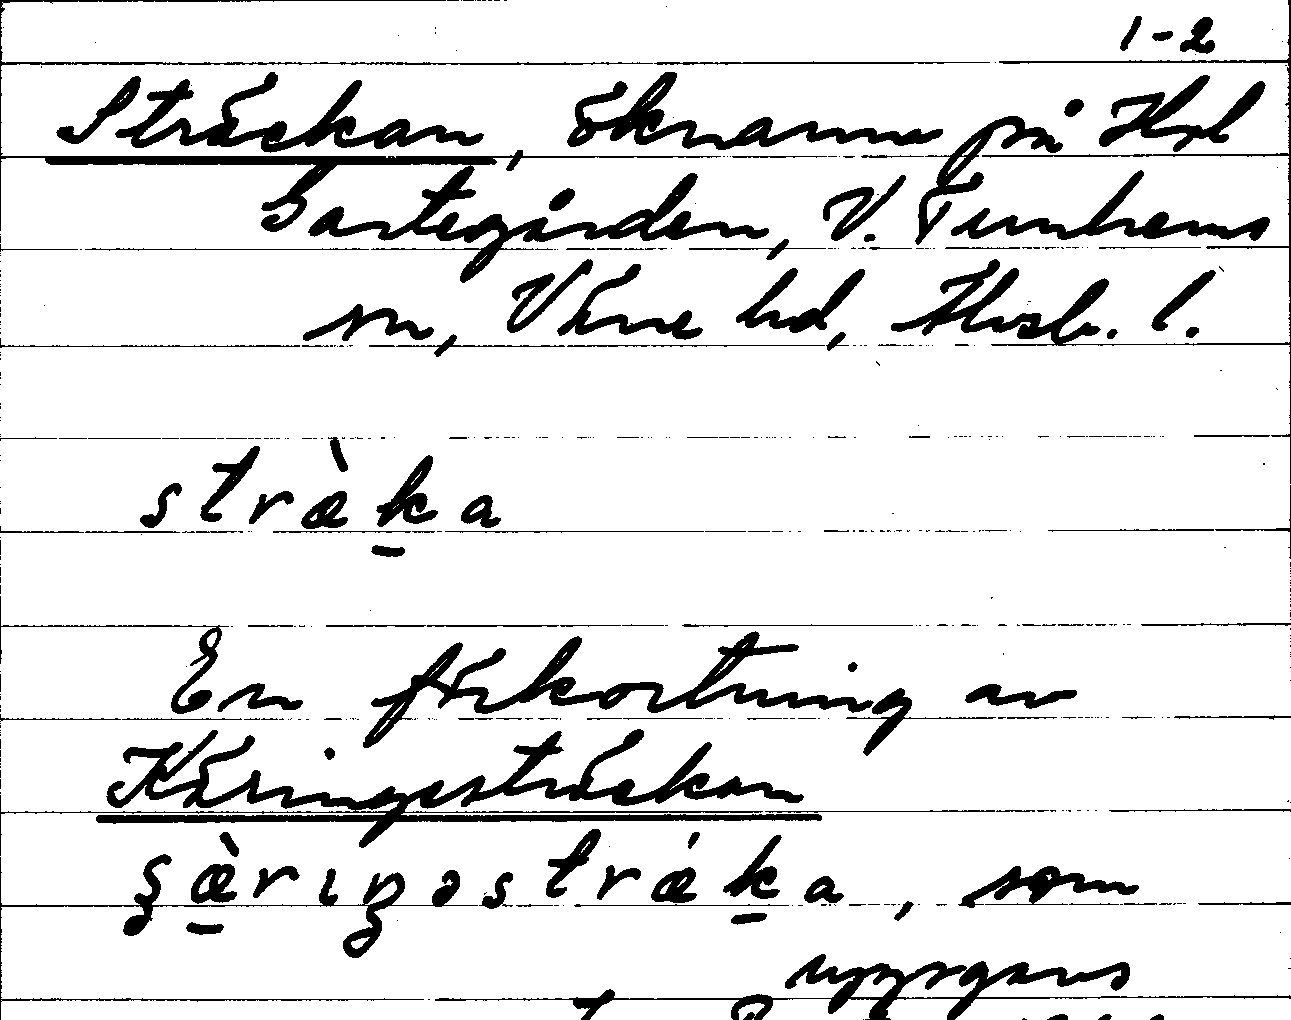 1-2
Sträckan, öknamn på Hfl
Bartegården, V. Tunhems
sn, Väne hd, Älvsb. l.
stræ̀k̠a
En förkortning av
Käringesträckan
ʂæ̠̀rıŋəstrǽk̠a, som
uppgavs